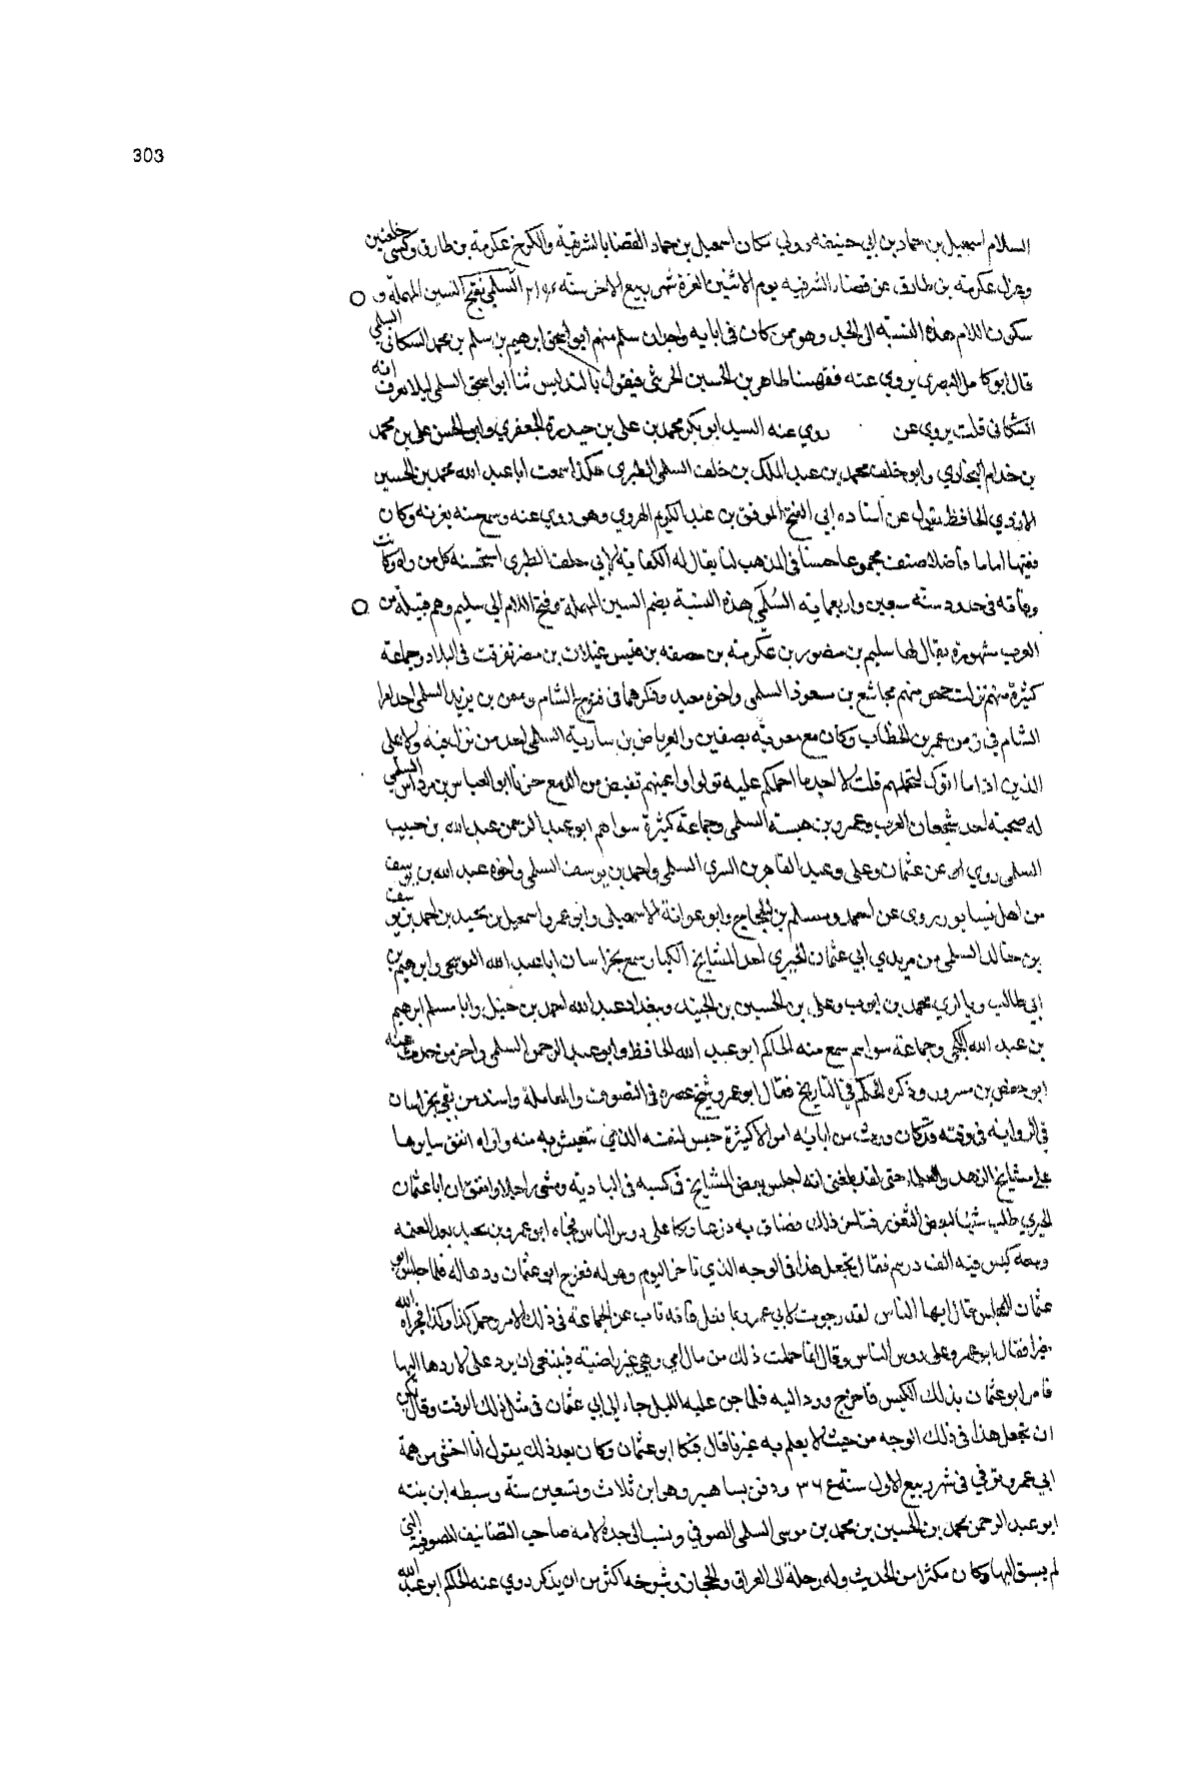 303
السلام اسمعيل بن حماد بن ابي حنيفه وولي مكان اسمعيل بن حماد القضا بالشرقية والكرخ عكرمة بن طارق وكسى خلعتين
وعزل عكرمة بن طارق عن قضاء الشرقيه يوم الاثنين لغرة شهر ربيع الاخر سنه السلمي بفتح السين المهملة و
سكون اللام هذه النسبة الى الجد وهو ممن كان في ابايه واجداده سلم منهم ابو اسحق ابرهيم بن سلم بن محمد الشكاني السلمي
قال ابو كامل البصري يروي عنه فقيهنا طاهر بن الحسين فيقول بالتدليس ثنا ابو اسحق السلمي ليلا يعرف انه
الشكاني قلت يروي عن روي عنه السيد ابو بكر محمد بن علي بن حيدرة الجعفري وابو الحسن علي بن محمد
بن خدام البخاري وابو خلف محمد بن عبد الملك بن خلف السلمي الطبري هكذا سمعت ابا عبد الله محمد بن الحسين
الحافظ يقول عن استاده ابي الفتح الموفق بن عبد الكريم الهروي وهو روي عنه وسمع منه بغزنه وكان
فقيها اماما فاضلا صنف مجموعا حسنا في المذهب لنا يقال له الكفاية لابي خلف الطبري استحسنه كل من راه وكانت
وفاته في حدود سنه سبعين واربعمايه السلمي هذه النسبة بضم السين المهملة وفتح اللام الى سليم وهم قبيلة من
العرب مشهورة يقال لها سليم بن منصور بن عكرمة بن خصفه بن قيس عيلان بن مضر تفرقت في البلاد وجماعة
كثيرة منهم نزلت حمص منهم مجاشع بن مسعود السلمي واخوه معبد وذكرهما في فتوح الشام ومعن بن يزيد السلمي احد امرا
الشام في زمن عمر بن الخطاب وكان مع معوية بصفين والعرباض بن سارية السلمي احد من نزل فيه ولا على
الذين اذا ما اتوك لتحملهم قلت لا اجد ما احملكم عليه تولوا واعينهم تفيض من الدمع حزنا ابو العباس بن مرداس السلمي
له صحبة احد شجعان العرب وعمرو بن عبسة السلمي وجماعة كثيرة سواهم ابو عبد الرحمن عبد الله بن حبيب
السلمي روي عن عثمان وعلي وعبد القاهر بن السري السلمي واحمد بن يوسف السلمي واخوه عبد الله بن يوسف
من اهل نيسابور يروي عن احمد ومسلم بن الحجاج وابو عوانة الاسمعيلي وابو عمرو اسمعيل بن نجيد بن احمد بن يوسف
بن خالد السلمي من مريدي ابي عثمان الحيري احد المشايخ الكبار سمع بخراسان ابا عبد الله البوشنجي وابرهيم بن
ابي طالب وبالري محمد بن ايوب وعلي بن الحسين بن الجنيد وببغداد عبد الله احمد بن حنبل وابا مسلم ابرهيم
بن عبد الله الكجي وجماعة سواهم سمع منه الحاكم ابو عبد الله الحافظ وابو عبد الرحمن السلمي واخر من حدث عنه
ابو حفص بن مسرور وذكره الحاكم في التاريخ فقال ابو عمرو شيخ عصره في التصوف والمعاملة واسند من بقي بخراسان
في الرواية في وقته وقد كان ورث من ابايه اموالا كثيرة حبس لنفسه الذي يتعيش به منه وانفق سايرها
على مشايخ الزهد والعلماء حتى لقد بلغني انه اجلس بعض المشايخ في كنيسه في البادية ومشى راجلا واتفق ان ابا عثمان
الحيري طلب شيئا لبعض الثغور فتاخر ذلك فضاق به ذرعا وبكا على روس الناس فجاه ابو عمرو بن نجيد بعد العتمه
ومعه كيس فيه الف درهم فقال يجعل هذا في الوجه الذي تاخر اليوم وهو له ففرح ابو عثمان ودعا له فلما جلس ابو
عثمان للمجلس قال ايها الناس لقد رجوت لابي عمرو بما فعل فانه ناب عن الجماعة في ذلك الامر وحمل كذا وكذا فجزاه الله
خيرا فقال ابو عمرو على روس الناس وقال انما حملت ذلك من مال امي وهي غير راضية فينبغي ان يرد علي لاردها اليها
فامر ابو عثمان بذلك الكيس فاخرج ورد اليه فلما جن عليه الليل جاء الى ابي عثمان في مثل ذلك الوقت وقال يمكن
ان يجعل هذا في ذلك الوجه من حيث لا يعلم به غيرنا قال فبكا ابو عثمان وكان بعد ذلك يقول انا اخشى من همة
ابي عمرو توفي في شهر ربيع الاول سنة ودفن وهو ابن ثلاث وتسعين سنة وسبطه ابن بنته
ابو عبد الرحمن محمد بن الحسين بن محمد بن موسى السلمي الصوفي ونسب الى جده لامه صاحب التصانيف للصوفية التي
لم يسبق اليها وكان مكثرا من الحديث وله رحلة الى العراق والحجاز وشيوخه اكثر من ان يذكر روي عنه الحاكم ابو عبد الله